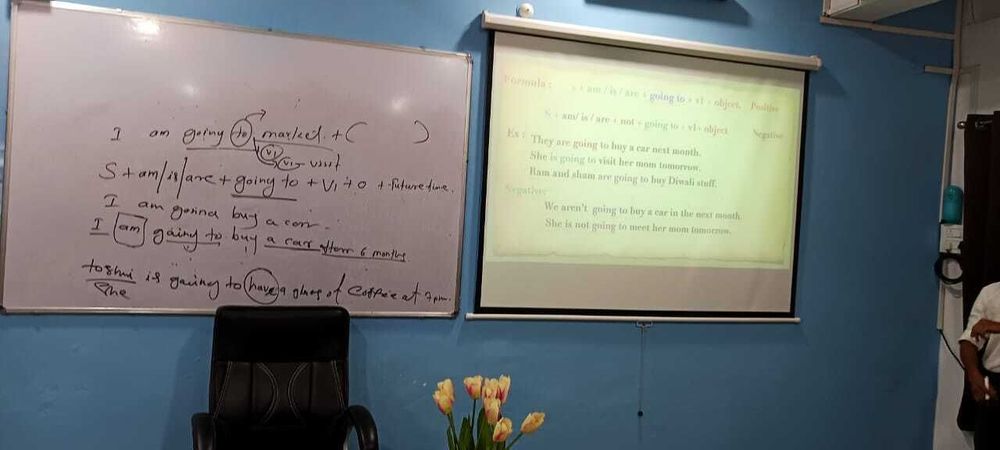 I am going to market + ( )
V1
V1 - visit
S + am/is/are + going to + V1 + o + future time.
I am gonna buy a car.
I am going to buy a car after 6 months.
is going to have a glass of Coffee at 7 pm.
She
Formula : s + am / is / are + going to + v1 + object. Positive
S + am/ is / are + not + going to + v1+ object Negative
Ex : They are going to buy a car next month.
She is going to visit her mom tomorrow.
Ram and sham are going to buy Diwali stuff.
Negative:
We aren't going to buy a car in the next month.
She is not going to meet her mom tomorrow.